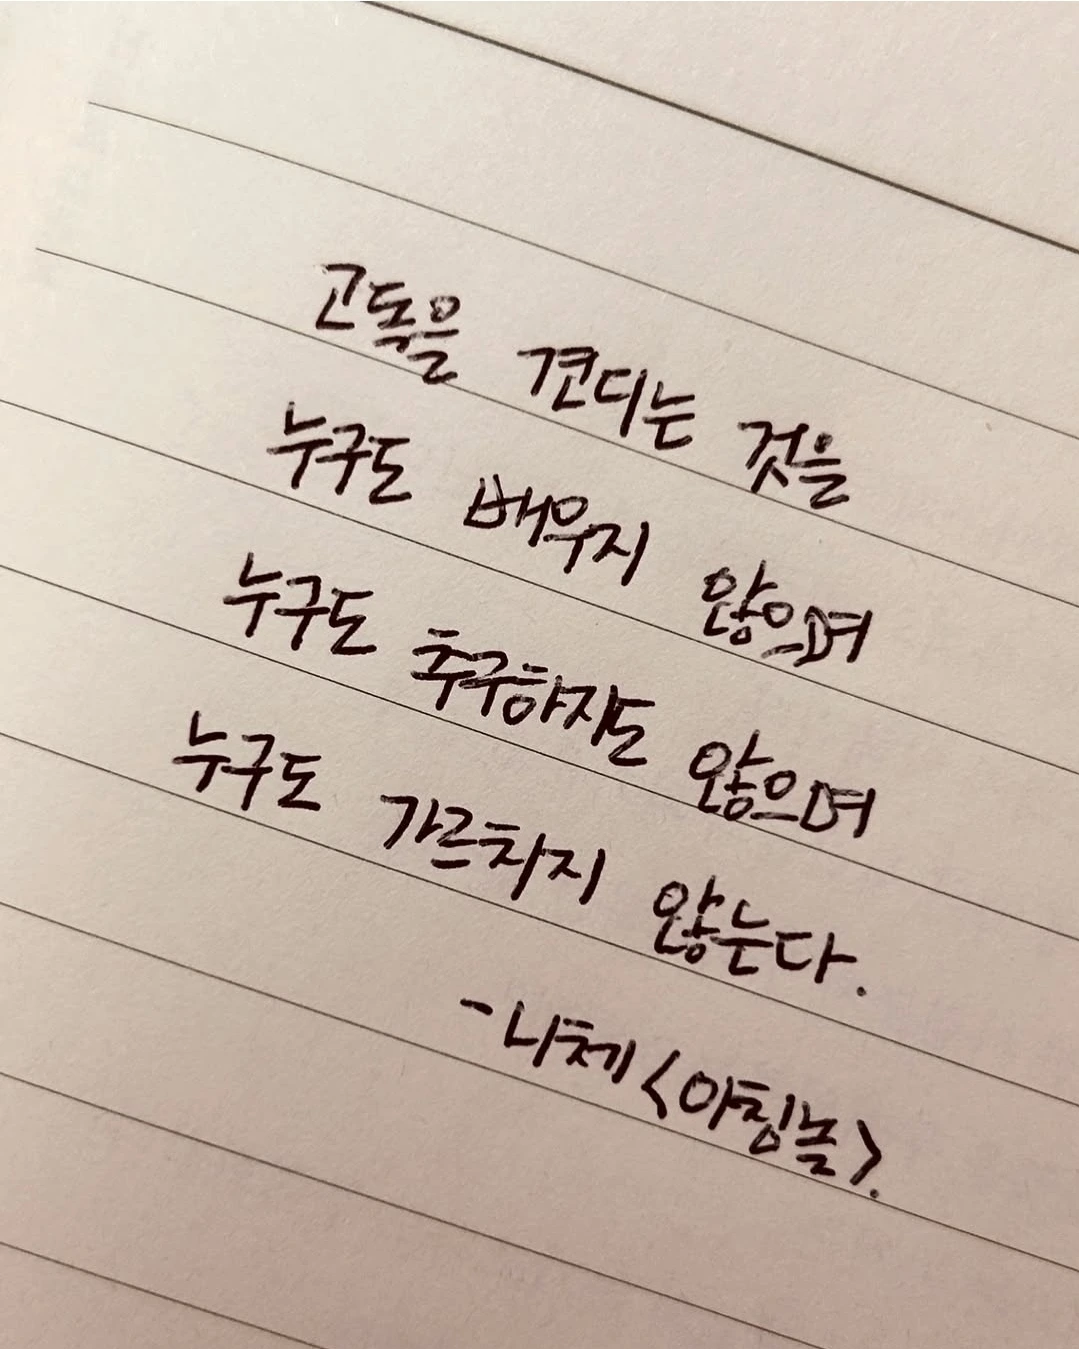 고독을 견디는 것을
누구도 배우지 않으며
누구도 추구하지도 않으며
누구도 가르치지 않는다.
- 니체 <아침놀>.